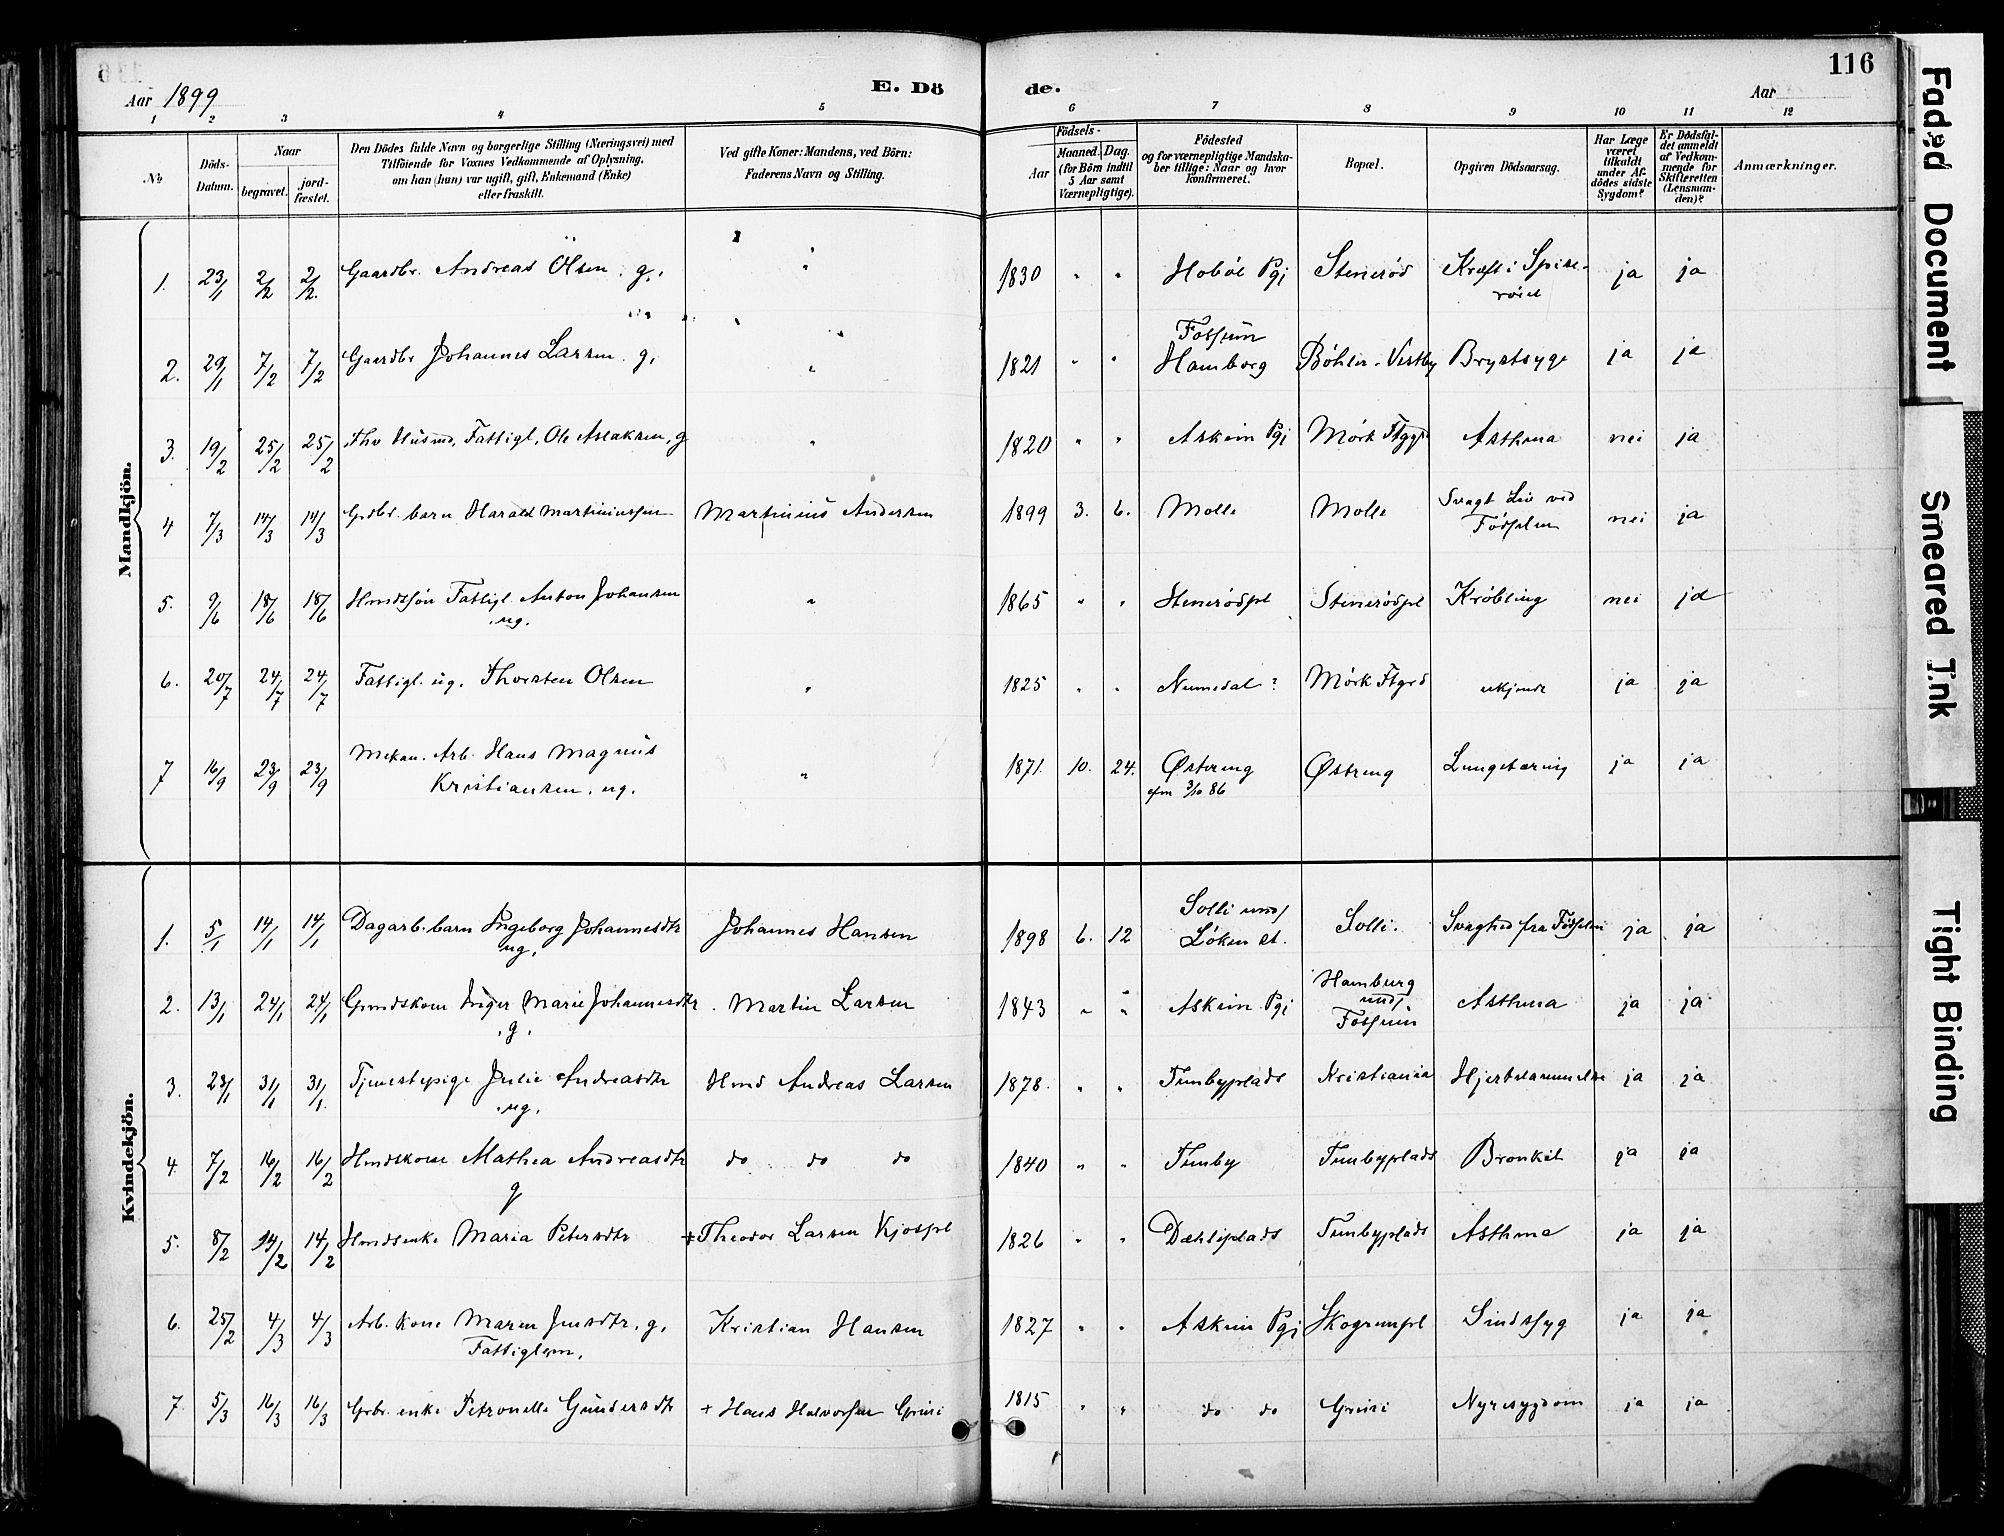 116
Aar 1899
E. Dö
de.
Aar
1 2 3 4 5 6 7 8 9 10 11 12
No
Döds-Datum.
Naar
begravet.
jord-fæstet.
Den Dödes fulde Navn og borgerlige Stilling (Næringsvei) med
Tilföiende for Voxnes Vedkommende af Oplysning,
om han (hun) var ugift, gift, Enkemand (Enke)
eller fraskilt.
Ved gifte Koner: Mandens, ved Börn:
Faderens Navn og Stilling.
Födsels-
Aar
Maaned. Dag.
(for Börn indtil
5 Aar samt
Værnepligtige).
Födested
og for værnepligtige Mandska-
ber tillige: Naar og hvor
konfirmeret.
Bopæl.
Opgiven Dödsaarsag.
Har Læge
været
tilkaldt
under Af-
dödes sidste
Sygdom?
Er Dödsfal-
det anmeldt
af Vedkom-
mende for
Skifteretten
(Lensman-
den)?
Anmærkninger.
Mandkjön.
1. 23/1 2/2 2/2. Gaardbr. Andreas Olsen. g. " 1830 " " Hobøl Pgj Stenerød Kræft i Spise-røret ja ja
2. 29/1 7/2 7/2 Gaardbr Johannes Larsen. g. " 1821 " " Fossum Hamborg Bøhler-Vestby Brystsyge ja ja
3. 19/2 25/2 25/2 Fhv Husmd, Fattigl, Ole Aslaksen, g " 1820 " " Askim Pgj Mørk Ftggrd Asthma nei ja
4 7/3 14/3 14/3 Grdbr. barn Harald Martiniussen Martinius Andersen 1899 3. 6. Molle Molle Svagt Liv ved Fødselen nei ja
5. 9/6 18/6 18/6 Hmdssøn Fattigl. Anton Johansen ug. " 1865 " " Stenerødpl Stenerødpl Krøbling nei ja
6. 20/7 24/7 24/7 Fattigl. ug. Thorsten Olsen " 1825 " " Numedal? Mørk Ftgrd ukjendt ja ja
7 16/9 23/9 23/9 Mekan. Arb. Hans Magnus Kristiansen. ug. " 1871. 10. 24. Østereng cfm 3/10 86 Østreng Lungetæring ja ja
Kvindekjön.
1. 5/1 14/1 14/1 Dagarb. barn Ingeborg Johannesdtr ug. Johannes Hansen 1898 6. 12 Solli und/ Løken st. Solli. Svaghed fra Fødselen ja ja
2. 13/1 24/1 24/1 Grmdskone Inger Marie Johannesdtr. g. Martin Larsen 1843 " " Askim Pgj Hamburg und/ Fossum Asthma ja ja
3. 23/1 31/1 31/1. Tjenestepige Julie Andreasdtr ug. Hmd Andreas Larsen 1878. " " Tunbyplads Kristiania Hjertelammelse ja ja
4. 7/2 16/2 16/2 Hmdskone Mathea Andreasdtr g do do do 1840 " " Tunby Tunbyplads Bronkit ja ja
5. 8/2 14/2 14/2 Hmdsenke Maria Petersdtr + Theodor Larsen Kjospl 1826 " " Dæhliplads Tunbyplads Asthma ja ja
6. 25/2 4/3 4/3 Arb. kone Maren Jensdtr, g. Fattiglem. Kristian Hansen 1827 " " Askim Pgj Skogrumpl Sindssyg ja ja
7. 5/3 16/3 16/3 Gbr. enke Petronelle Gundersdtr + Hans Halvorsen Grini 1815 " " do do Grini Nyresygdom ja ja
Faded Document
Smeared Ink
Tight Binding